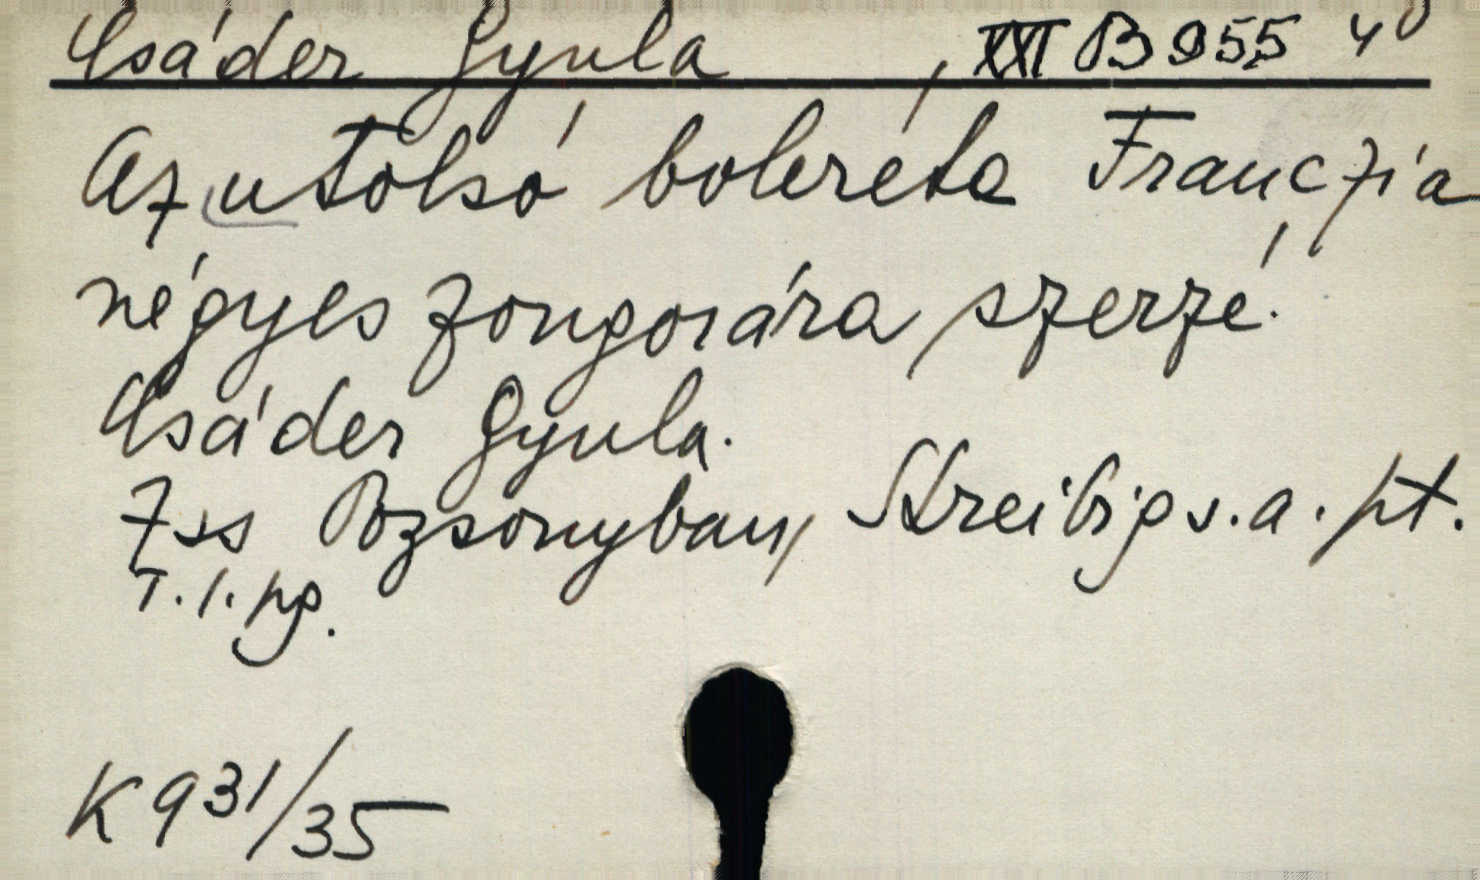 Csáder Gyula, XXI B 955 4°
Az utolsó boleréta Franczia
négyes zongorára, szerzé.
Csáder Gyula.
Pozsonyban, Streibig s.a. pt.
T.1. pg.
K 931/35